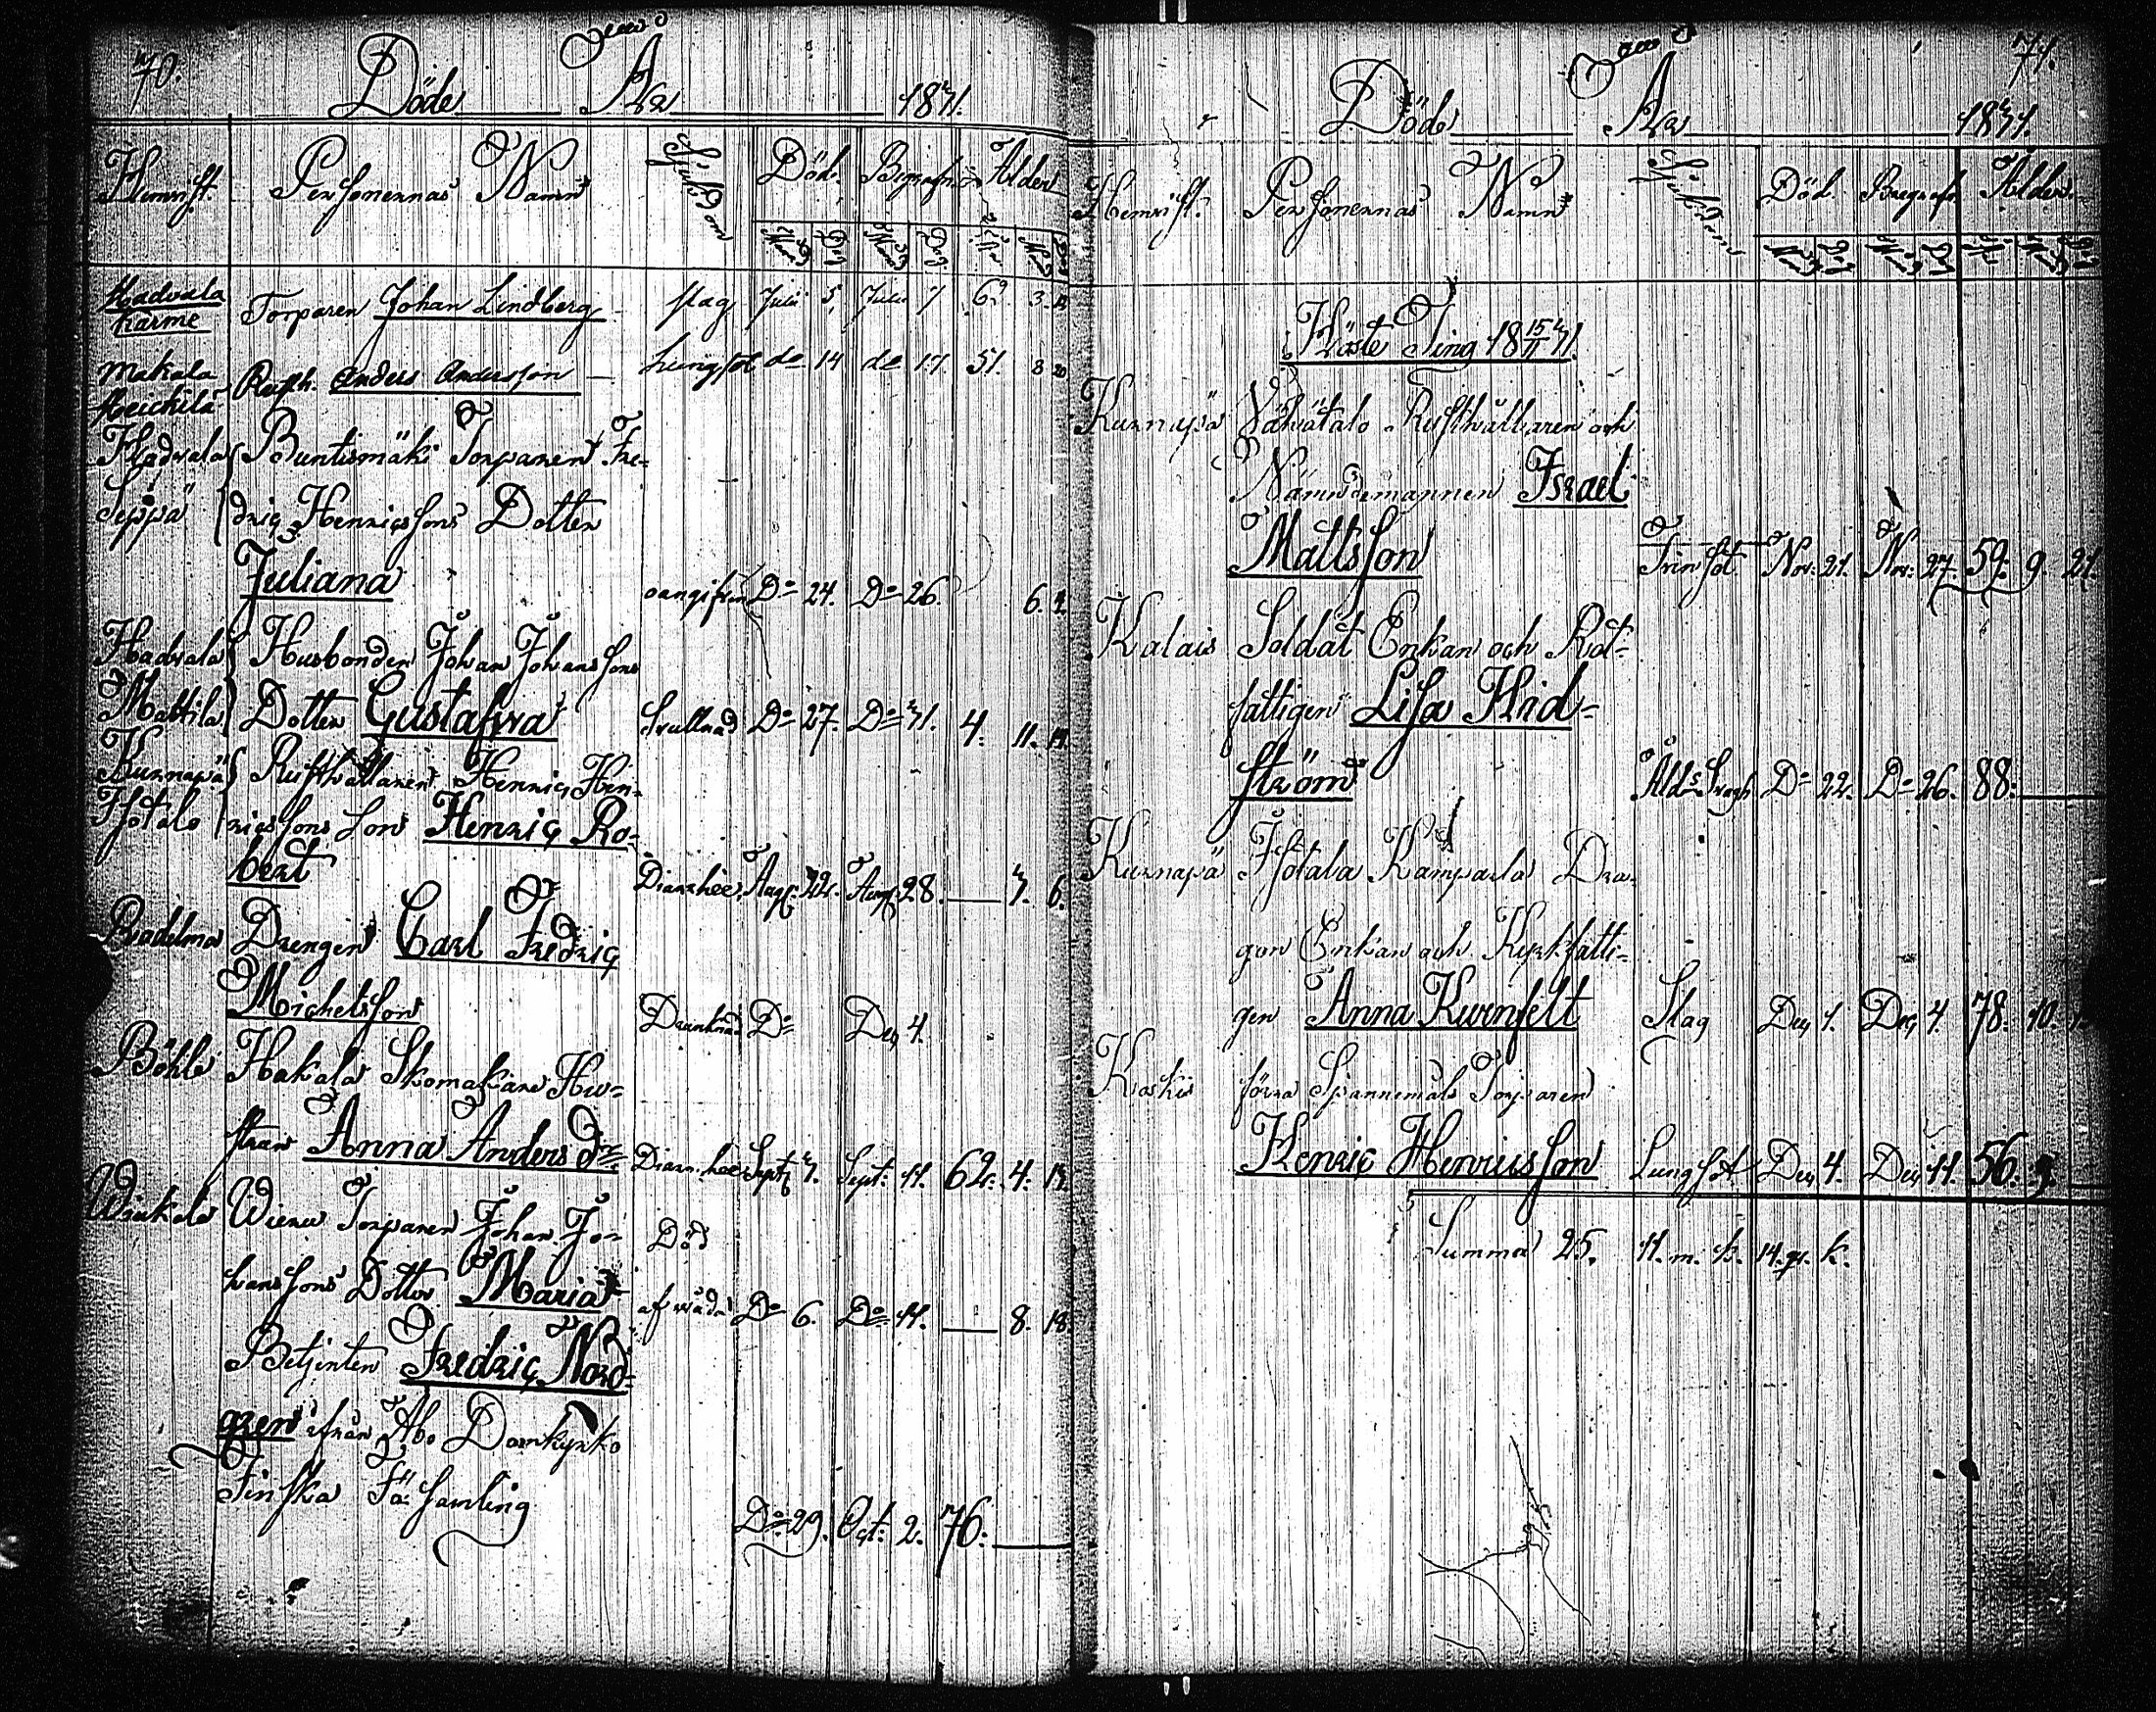 70.
Döde Åra 1831.
Hemvist. Personernas Namn Sjukdom Död. Begrafn: Ålder
Månad Dag Månad Dag År Mån
Hadvala
Kärme Torparen Johan Lindberg slag Julii 5 Julii 7 62 3.
Makala
Heickilä Rusth. Anders Andersson lungsot do 14 do 17 51. 8 20
Hadvala Buntismäki Torparen Fre-
Seppä dric Henricssons Dotter
Juliana oangifven Do 24. Do 26. 6.
Hadvala Husbonden Johan Johanssons
Mattila Dotter Gustafva Do 27. Do 31. 4. 11.
Kurnapä Rusthållaren Henric Hen-
Isotalo ricssons Son Henric Ro-
bert Diarrhée Aug: 22. Aug: 28. 7. 6.
Badelma Drengen Carl Fredric
Michelsson Drunknad Do Dec 4.
Böhle Hakala Skomakare Hu-
strun Anna Anders dr Diarrhée Sept 7. Sept: 11. 62. 4.
Wiukala Torparen Johan Jo- Död
hanssons Dotter Maria af våda Do 6. Do 11. 8. 18.
Betjenten Fredric Nord-
gren ifrån Åbo Domkyrko
Finska Församling
Do 29. Oct: 2. 76.
71.
Döde Åra 1831.
Hemvist. Personernas Namn Sjukdom Död. Begrafn. Ålder.
Höste Ting 18 15/11 31.
Kurnapä Vähätalo Rusthållaren och
Nämndemannen Israel
Mattsson Trinsot. Nov: 21. Nov: 27 59. 9. 21.
Kalais Soldat Enkan och Rot-
fattigen Lisa Hid-
ström Åld: Do 22. Do 26. 88.
Kurnapä Isotala Kamparla Dra-
gon Enkan och Kyrkfatti-
gen Anna Kurnfelt Slag Dec 1. Dec 4. 78. 10.
Koskis förra Spannemåls Torparen
Henric Henricsson Lungsot Dec 4. Dec 11. 56. 9.
Summa 25. 11. m. k. 14. qv. k.